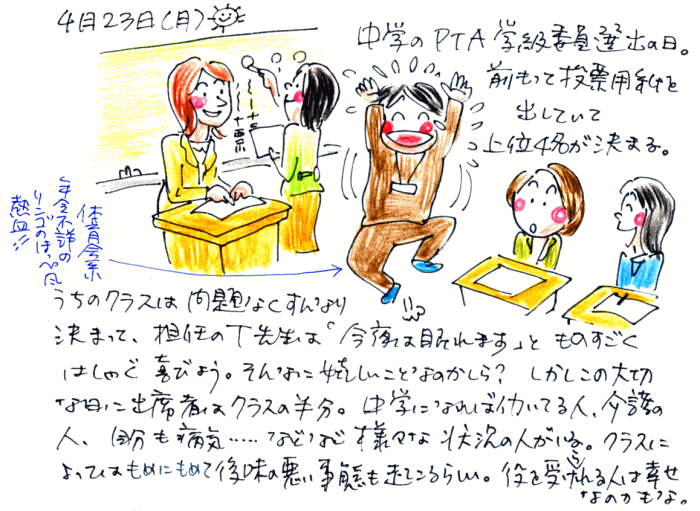 4月23日(月)
中学のPTA学級委員選出の日。
前もって投票用紙を
出していて
上位4名が決まる。
十西原
体育会系
年令不詳の
リンゴのほっぺ風
熱血!!
うちのクラスは問題なくすんなり
決まって、担任のT先生は「今夜は眠れます」とものすごく
はしゃぐ喜びよう。そんなに嬉しいことなのかしら? しかしこの大切
な日に出席者はクラスの半分。中学になれば働いてる人、介護の
人、自分も病気……などなど様々な状況の人がいる。クラスに
よってはもめにもめて後味の悪い事態も起こるらしい。役を受けられる人は幸せ
なのかもな。